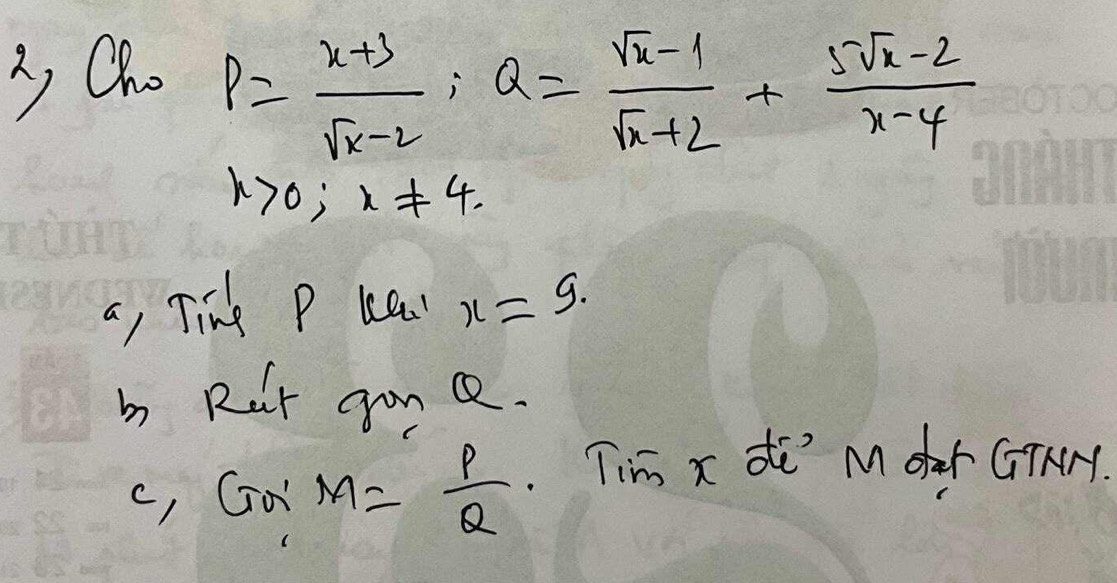 2, Cho P = \frac{x+3}{\sqrt{x}-2} ; Q = \frac{\sqrt{x}-1}{\sqrt{x}+2} + \frac{5\sqrt{x}-2}{x-4}
x>0; x ≠ 4.
a, Tính P khi x = 9.
b, Rút gọn Q.
c, Gọi M = \frac{P}{Q}. Tìm x để M đạt GTNN.
OCTOBER
THÁNG
MƯỜI
THỨ T
WEDNESD
43